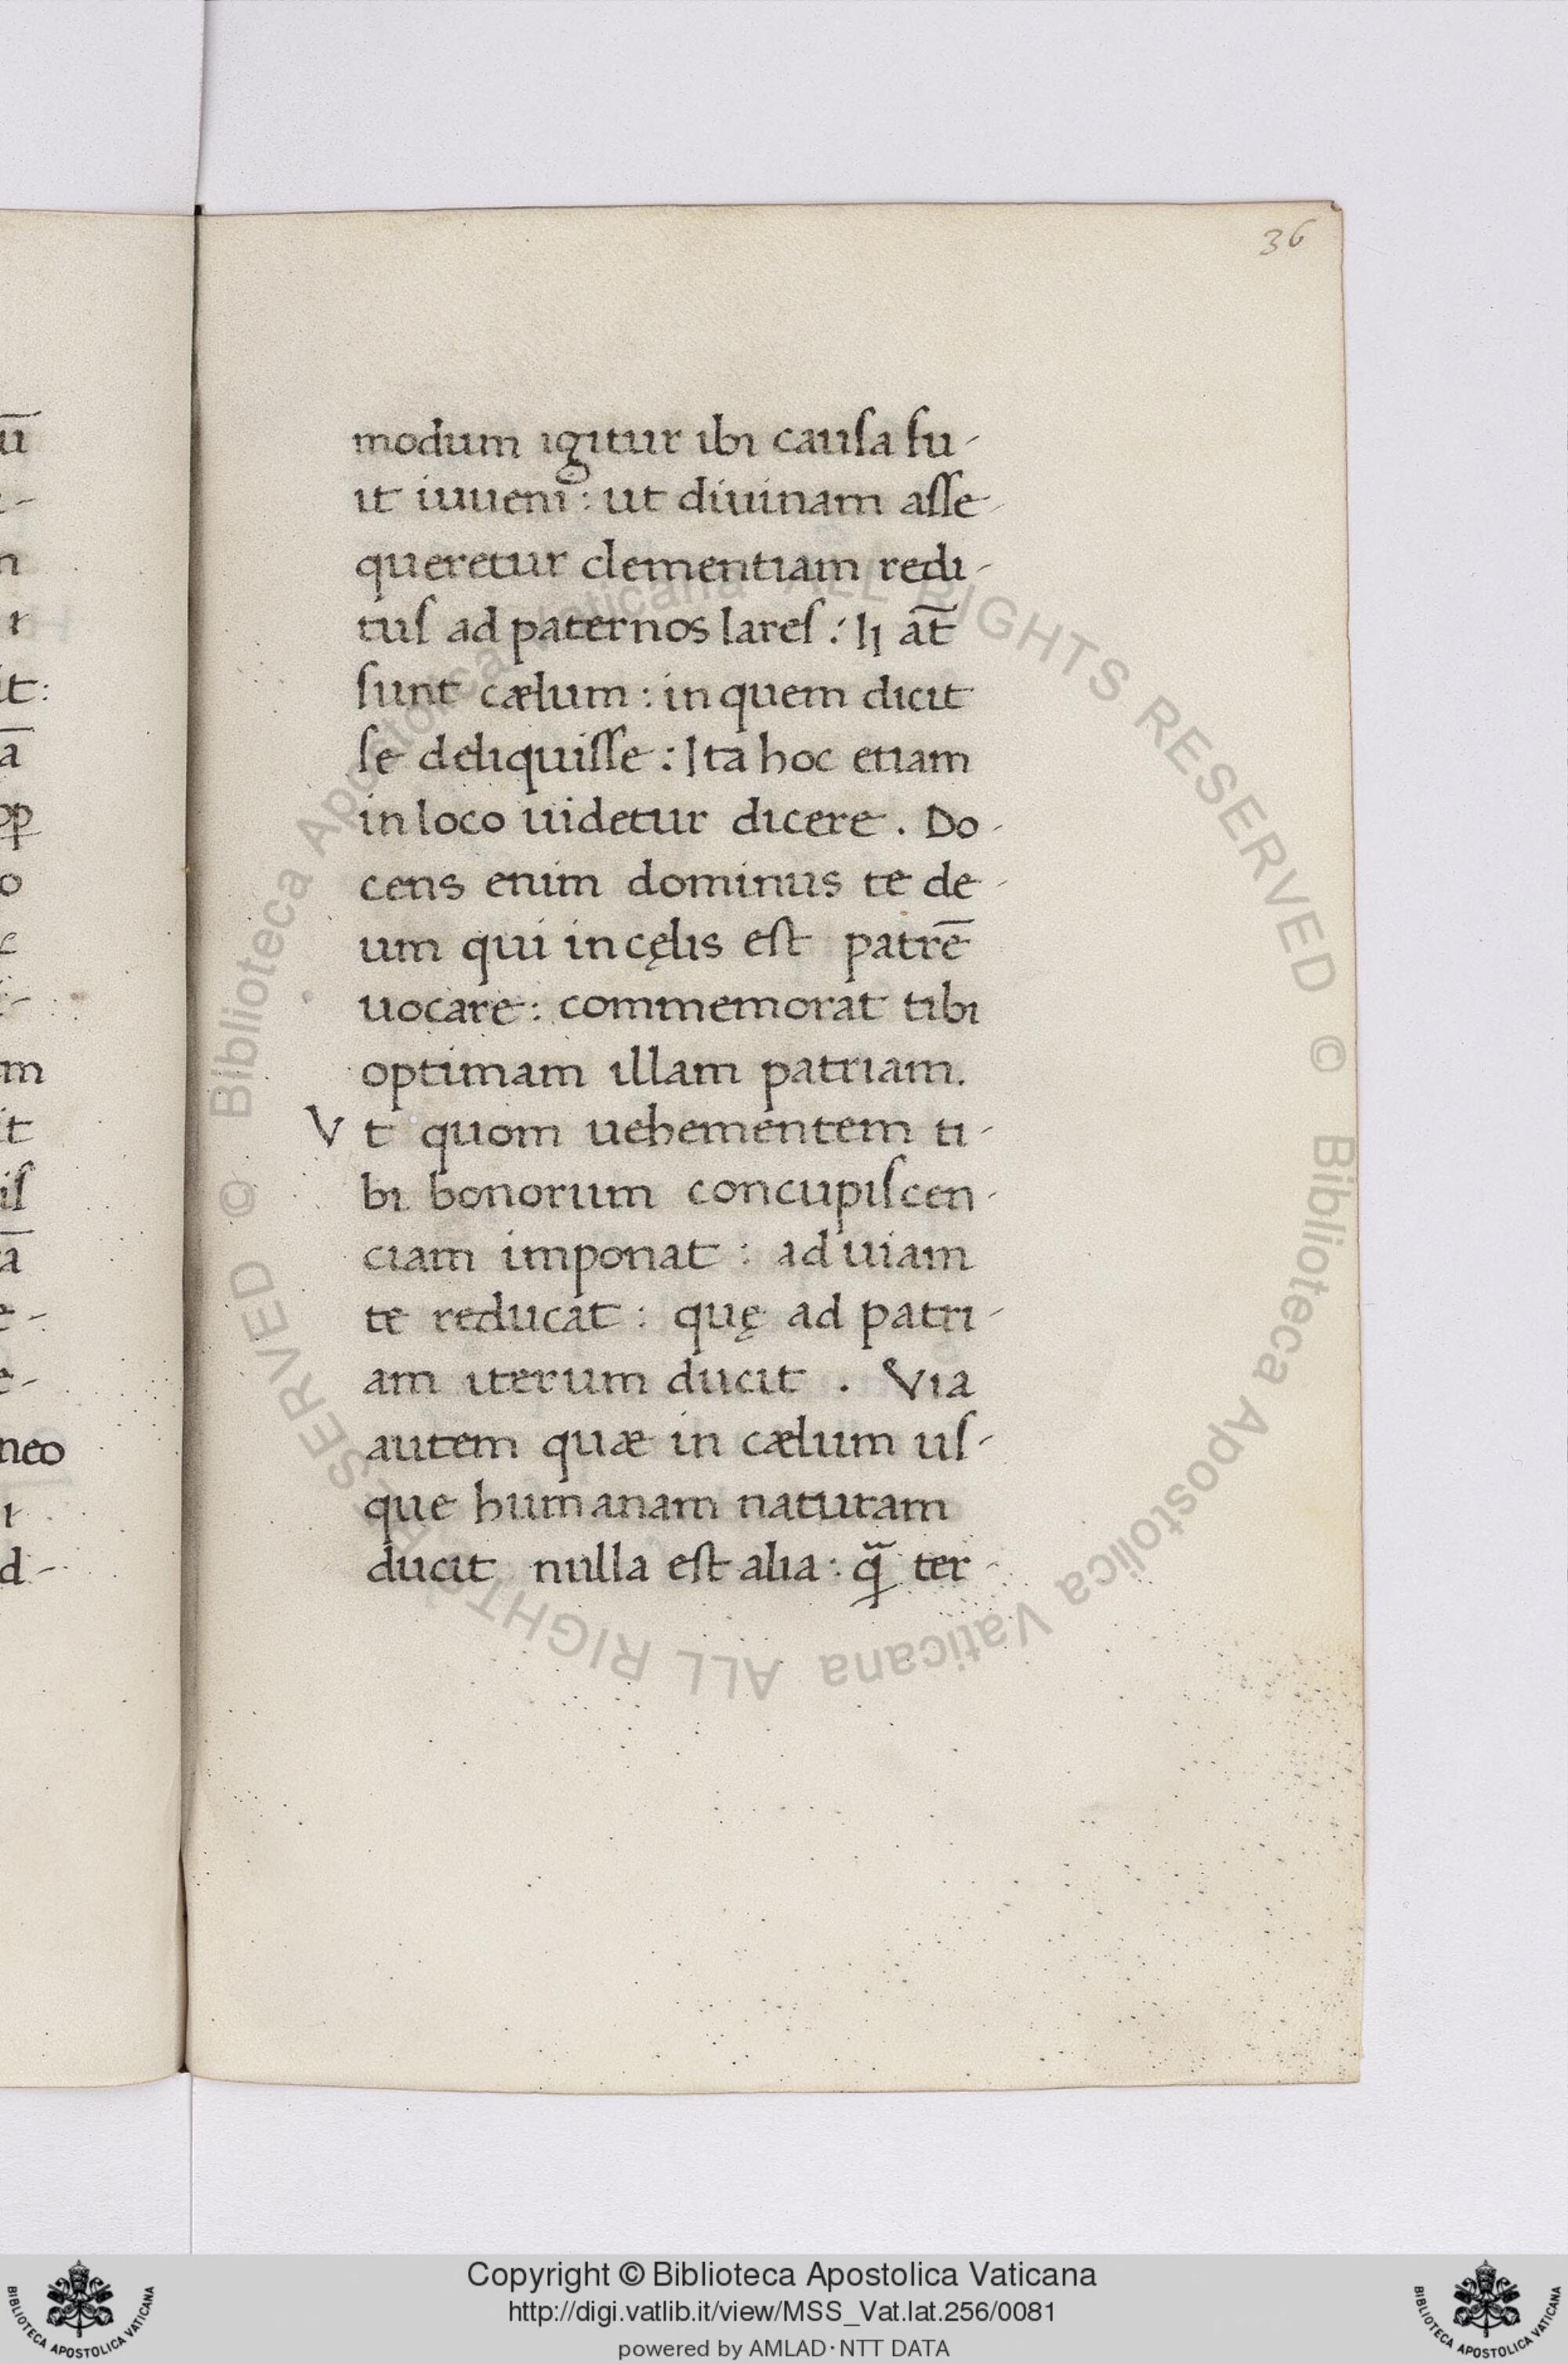 36
modum igitur ibi cauſa fu-
it iuueni: ut diuinam aſſe-
queretur clementiam redi-
tuſ ad paternos lareſ: Ij at̄
ſunt cælum: in quem dicit
ſe deliquiſſe: Ita hoc etiam
in loco uidetur dicere. Do-
cens enim dominus te de-
um qui in cęlis eſt patrē
uocare: commemorat tibi
optimam illam patriam.
Vt quom uehementem ti-
bi bonorum concupiſcen-
ciam imponat: ad uiam
te reducat: quę ad patri-
am iterum ducit. Via
autem quæ in cælum uſ-
que humanam naturam
ducit nulla eſt alia: q̄ ter-
© Biblioteca Apostolica Vaticana ALL RIGHTS RESERVED © Biblioteca Apostolica Vaticana ALL RIGHTS RESERVED
Copyright © Biblioteca Apostolica Vaticana
http://digi.vatlib.it/view/MSS_Vat.lat.256/0081
powered by AMLAD·NTT DATA
BIBLIOTECA APOSTOLICA VATICANA
BIBLIOTECA APOSTOLICA VATICANA